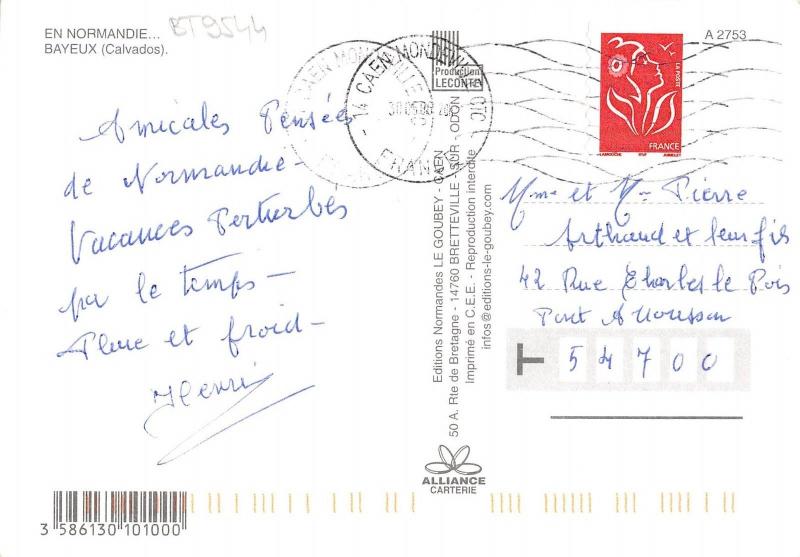 EN NORMANDIE...
BAYEUX (Calvados).
BT9544
A 2753
Production
LECONTE
14 CAEN MONDEVILLE CTC
FRANCE
LA POSTE
FRANCE
LAMOUCHE ITVF
Amicales Pensées
de Normandie -
Vacances Perturbés
par le temps -
Pluie et froid -
Henri
Editions Normandes LE GOUBEY - CAEN
50 A. Rte de Bretagne - 14760 BRETTEVILLE - SUR - ODON
Imprimé en C.E.E. - Reproduction interdite
infos@editions-le-goubey.com
Mme et Mr Pierre
Arthaud et leur fils
42 Rue Charles le Pois
Pont A Mousson
54700
ALLIANCE
CARTERIE
3 586130 101000